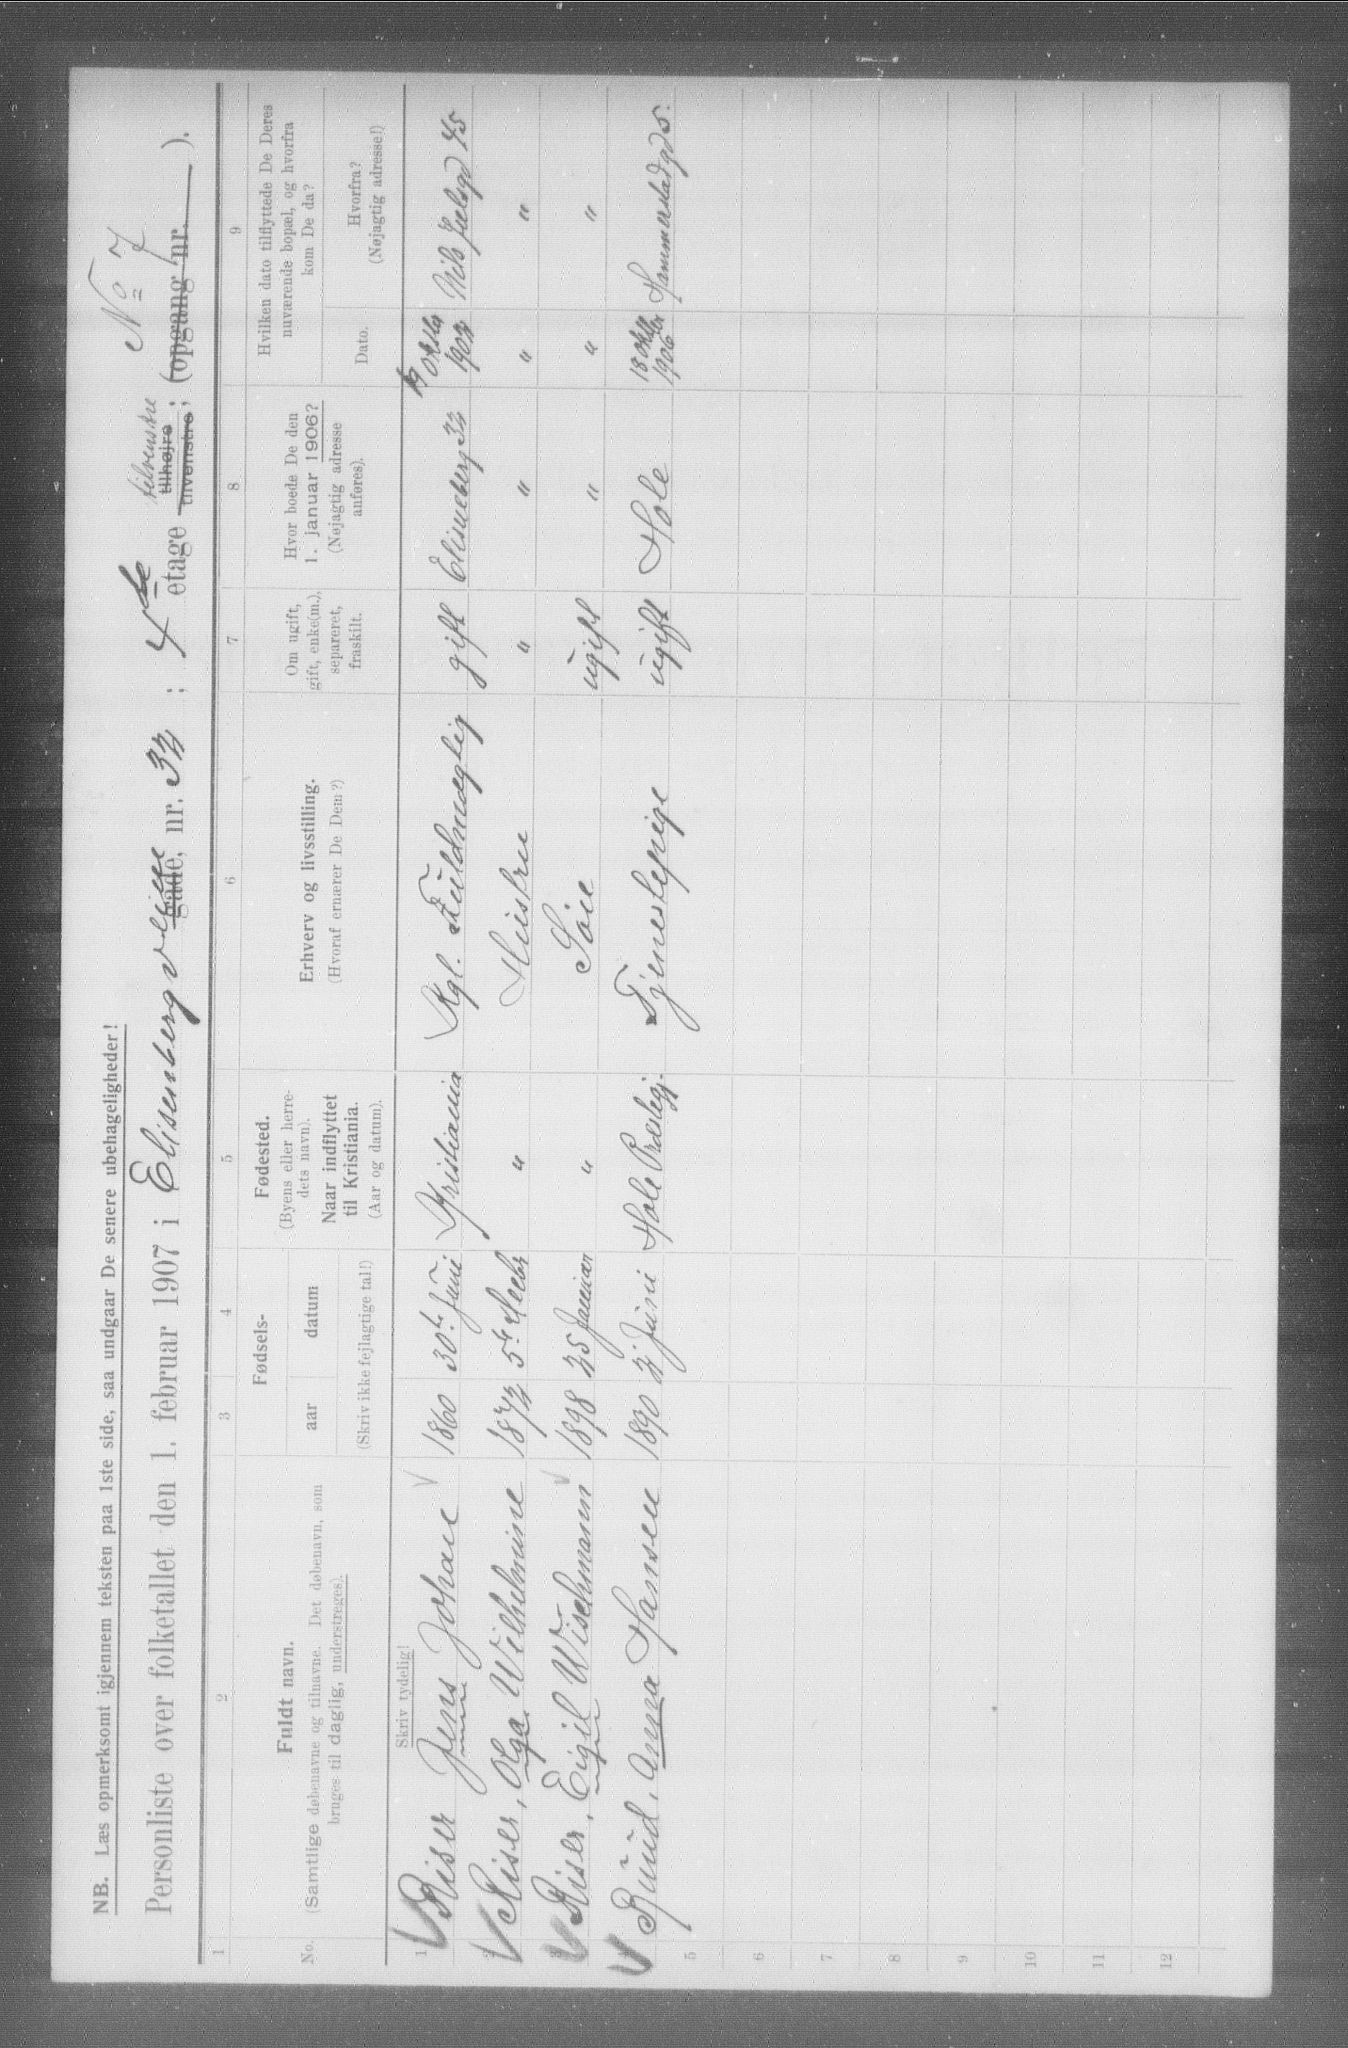 NB. Læs opmerksomt igjennem teksten paa 1ste side, saa undgaar De senere ubehageligheder!
No 7
Personliste over folketallet den 1. februar 1907 i Elisenberg veien gade, nr. 32 ; 4de etage tilhøjre tilvenstre tilvenstre; (opgang nr. ).
1 2 3 4 5 6 7 8 9
No.
Fuldt navn.
(Samtlige døbenavne og tilnavne. Det døbenavn, som
bruges til daglig, understreges).
Fødsels-
aar datum
(Skriv ikke fejlagtige tal!)
Fødested.
(Byens eller herre-
dets navn).
Naar indflyttet
til Kristiania.
(Aar og datum).
Erhverv og livsstilling.
(Hvoraf ernærer De Dem?)
Om ugift,
gift, enke(m.),
separeret,
fraskilt.
Hvor boede De den
1. januar 1906?
(Nøjagtig adresse
anføres).
Hvilken dato tilflyttede De Deres
nuværende bopæl, og hvorfra
kom De da?
Dato.
Hvorfra?
(Nøjagtig adresse!)
Skriv tydelig!
1 Riser Jens Johan 1860 30te Juni Kristiania Kgl. Fuldmægtig gift Elisneberg 32 Oktbr 1902 Nils Juelsgd 45
2 Riser, Olga Wilhelmine 1872 5te Decbr " Huisfrue " " " "
3 Riser, Eigil Wischmann 1898 25 Januar " Søn ugift " " "
4 Ruud, Anna Hansen 1890 2 Juni Hole Præstegj. Tjenestepige ugift Hole 18 Oktbr 1906 Hammerstadgd 5.
5
6
7
8
9
10
11
12